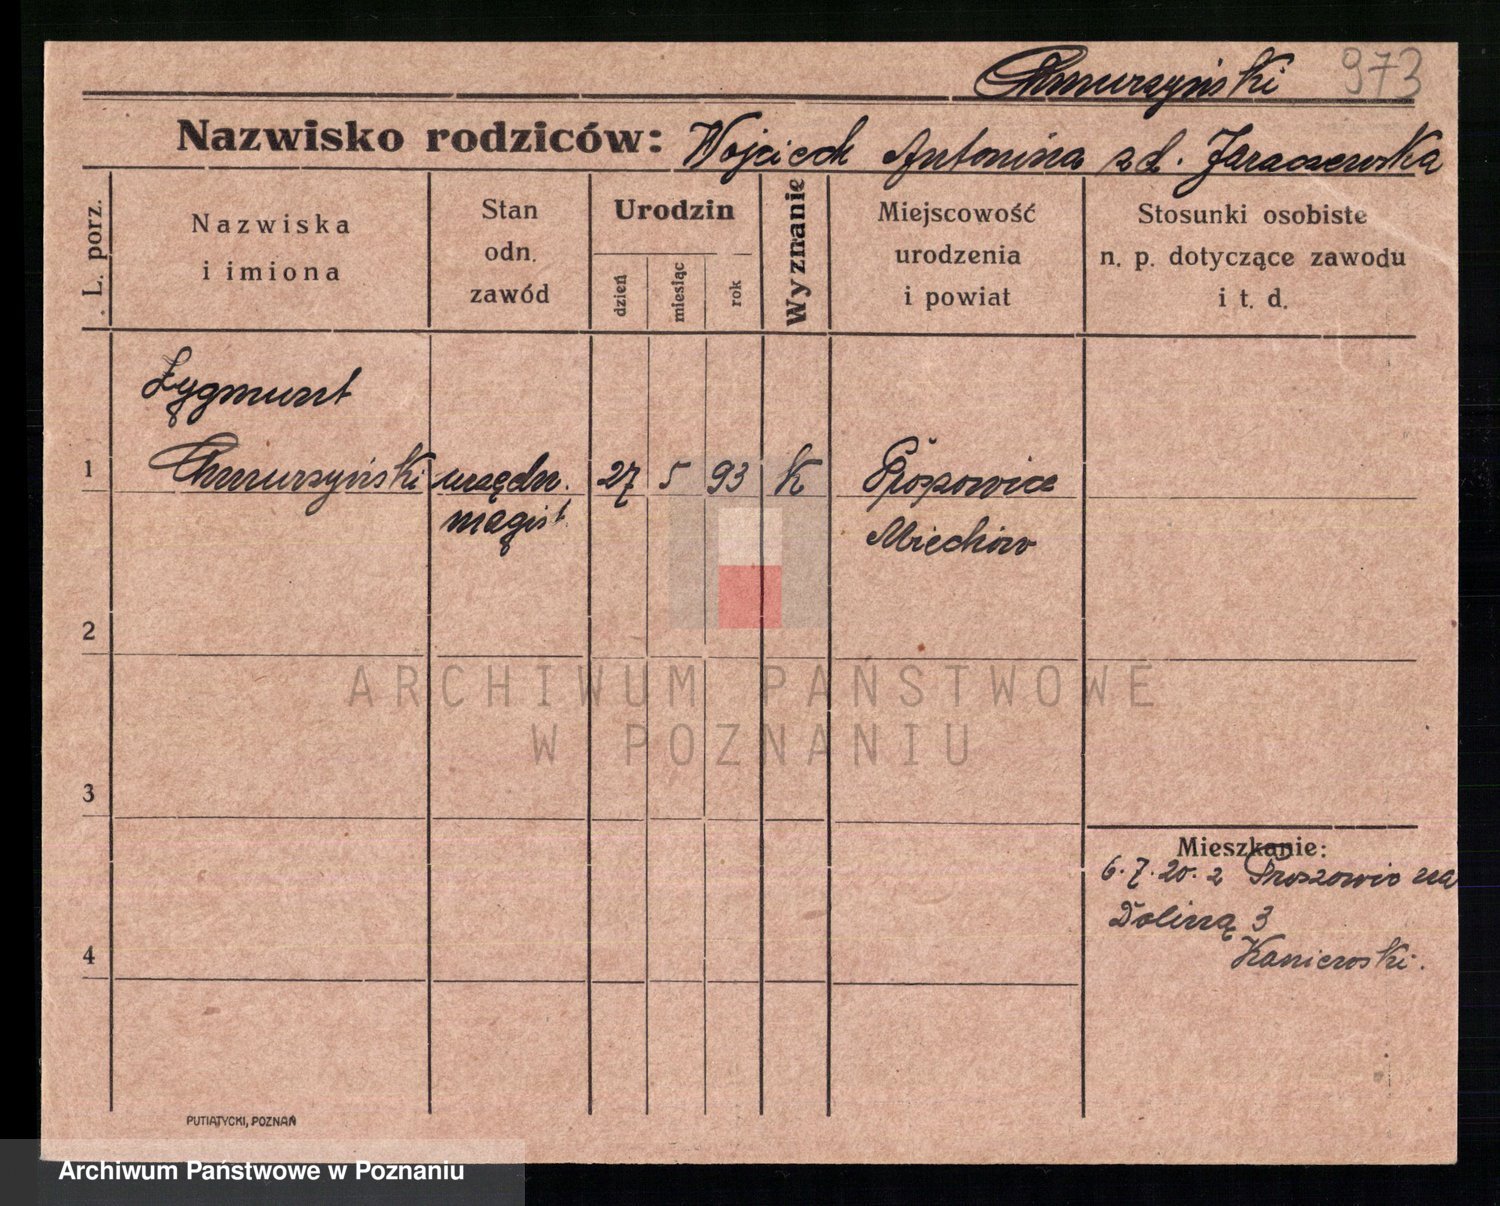 Chmurzyński 973
Nazwisko rodziców: Wojciech Antonina zd. Jaraczewska
L. porz.
Nazwiska
i imiona
Stan
odn.
zawód
Urodzin
dzień
miesiąc
rok
Wyznanie
Miejscowość
urodzenia
i powiat
Stosunki osobiste
n. p. dotyczące zawodu
i t. d.
Zygmunt
1 Chmurzyński urzędn. 27 5 93 K Proszowice
magist. Miechów
2
ARCHIWUM PAŃSTWOWE
W POZNANIU
3
Mieszkanie:
6.7.20. z Proszowic na
Dolina 3
Kanierski.
4
PUTIATYCKI, POZNAŃ
Archiwum Państwowe w Poznaniu